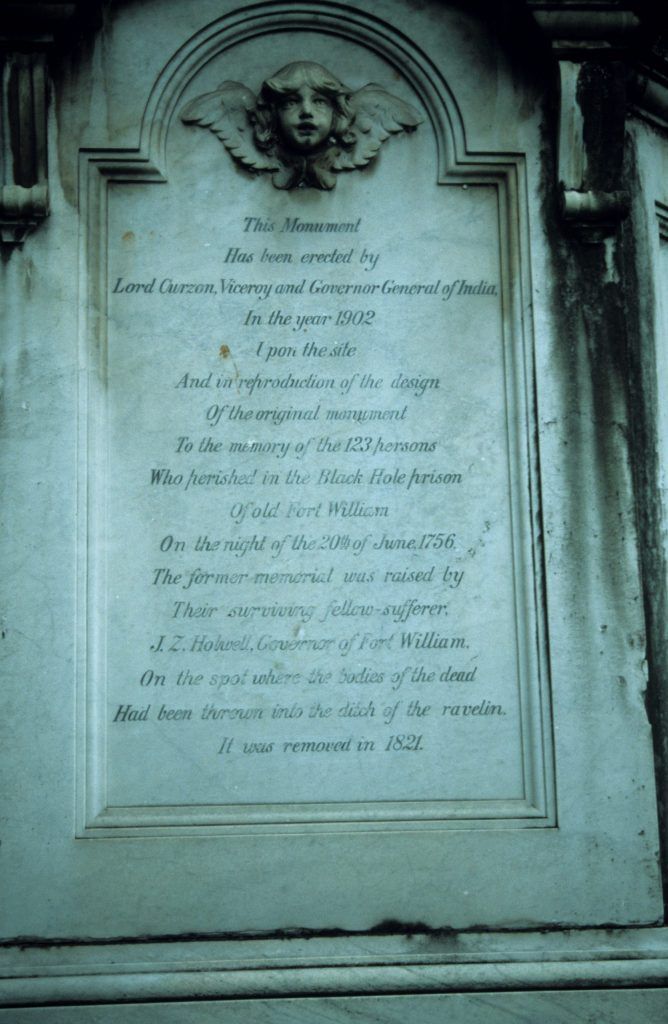 This Monument
Has been erected by
Lord Curzon, Viceroy and Governor General of India,
In the year 1902
Upon the site
And in reproduction of the design
Of the original monument
To the memory of the 123 persons
Who perished in the Black Hole prison
Of old Fort William
On the night of the 20th of June, 1756.
The former memorial was raised by
Their surviving fellow-sufferer,
J. Z. Holwell, Governor of Fort William,
On the spot where the bodies of the dead
Had been thrown into the ditch of the ravelin.
It was removed in 1821.